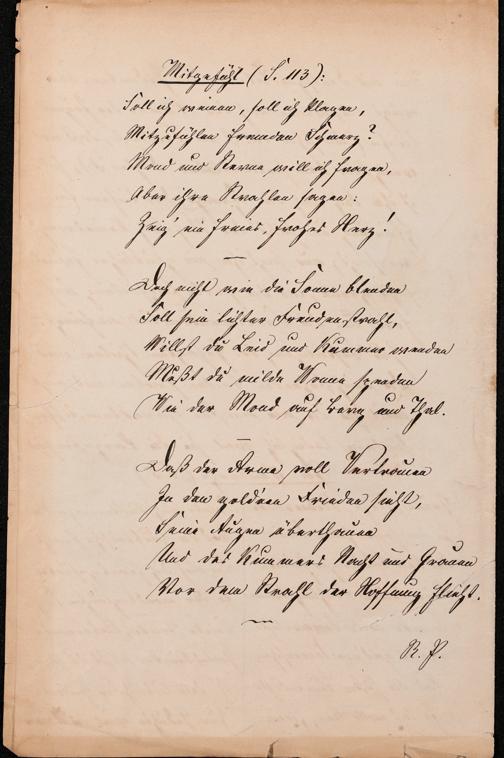 Mitgefühl (S. 113):
Soll ich weinen, soll ich klagen,
Mitzufühlen fremden Schmerz?
Mond und Sterne will ich fragen,
Aber ihre Strahlen sagen:
Zeig' ein freies, frohes Herz!
Doch nicht wie die Sonne blenden
Soll sein lichter Freudenstrahl,
Willst du Leid und Kummer wenden
Mußt du milde Wonne spenden
Wie der Mond auf Berg und Thal.
Daß der Arme voll Vertrauen
In den goldnen Frieden sieht,
Seine Augen überthauen
Und des Kummers Nacht und Grauen
Vor dem Strahl der Hoffnung flieht.
R. P.